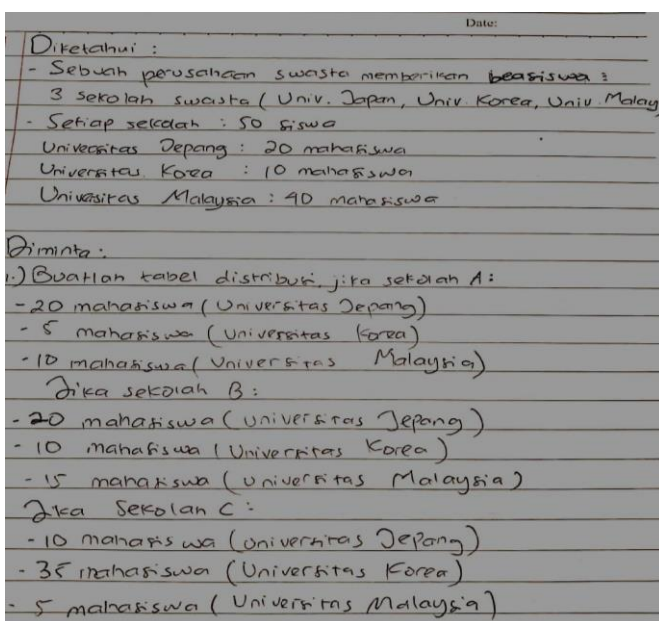 Date:
Diketahui :
- Sebuah perusahaan swasta memberikan beasiswa :
3 sekolah swasta ( Univ. Japan, Univ. Korea, Univ. Malay
- Setiap sekolah : 50 siswa
Universitas Jepang : 20 mahasiswa
Universitas Korea : 10 mahasiswa
Univesitas Malaysia : 40 mahasiswa
Diminta :
1.) Buatlah tabel distribusi, jika sekolah A :
- 20 mahasiswa ( Universitas Jepang )
- 5 mahasiswa ( Universitas Korea )
- 10 mahasiswa ( Universitas Malaysia )
Jika sekolah B :
- 20 mahasiswa ( Universitas Jepang )
- 10 mahasiswa ( Universitas Korea )
- 15 mahasiswa ( Universitas Malaysia )
Jika Sekolah C :
- 10 mahasiswa ( Universitas Jepang )
- 35 mahasiswa ( Universitas Korea )
- 5 mahasiswa ( Universitas Malaysia )